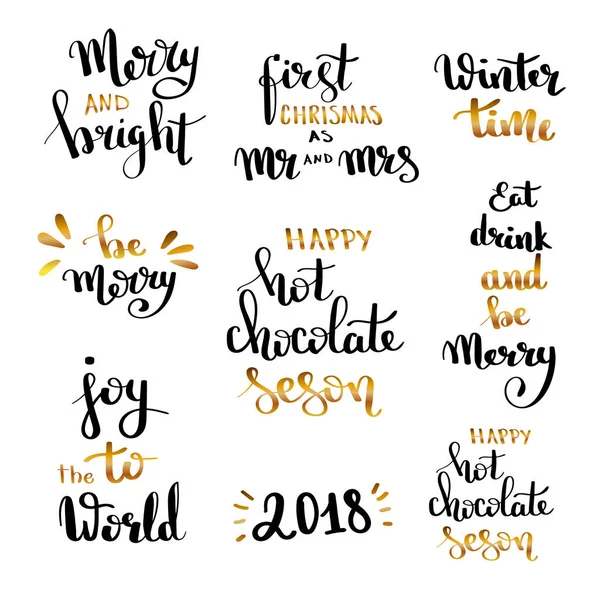 Merry
AND
bright
first
CHRISMAS
AS
Mr AND Mrs
Winter
time
be
merry
HAPPY
hot
chocolate
seson
Eat
drink
and
be
Merry
joy
the to
World
2018
HAPPY
hot
chocolate
seson